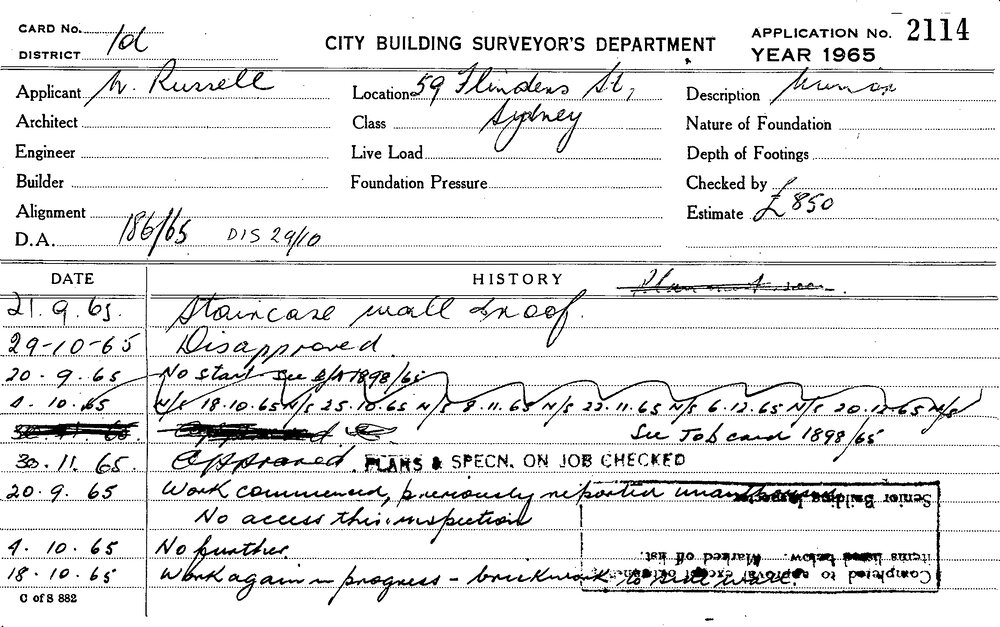 CARD No.
DISTRICT 1d
CITY BUILDING SURVEYOR'S DEPARTMENT
APPLICATION No. 2114
YEAR 1965
Applicant N. Russell
Location 59 Flinders St,
Description
Architect
Class Sydney
Nature of Foundation
Engineer
Live Load
Depth of Footings
Builder
Foundation Pressure
Checked by
Alignment
Estimate £850
D.A. 186/65 DIS 29/10
DATE HISTORY
21.9.65. Staircase wall & roof.
29-10-65 Disapproved.
20.9.65 No start see 1898/65
4.10.65 N/S 18.10.65 N/S 25.10.65 N/S 8.11.65 N/S 22.11.65 N/S 6.12.65 N/S 20.12.65 N/S
See Job card 1898/65
30.11.65. Approved. PLANS & SPECN. ON JOB CHECKED
20.9.65 Work commenced, previously reported
No access this inspection
4.10.65 No further
18.10.65 Work again in progress - brickwork
Completed to approval except outstanding
items listed below. Marked off list.
Senior Building Inspector
C of S 882